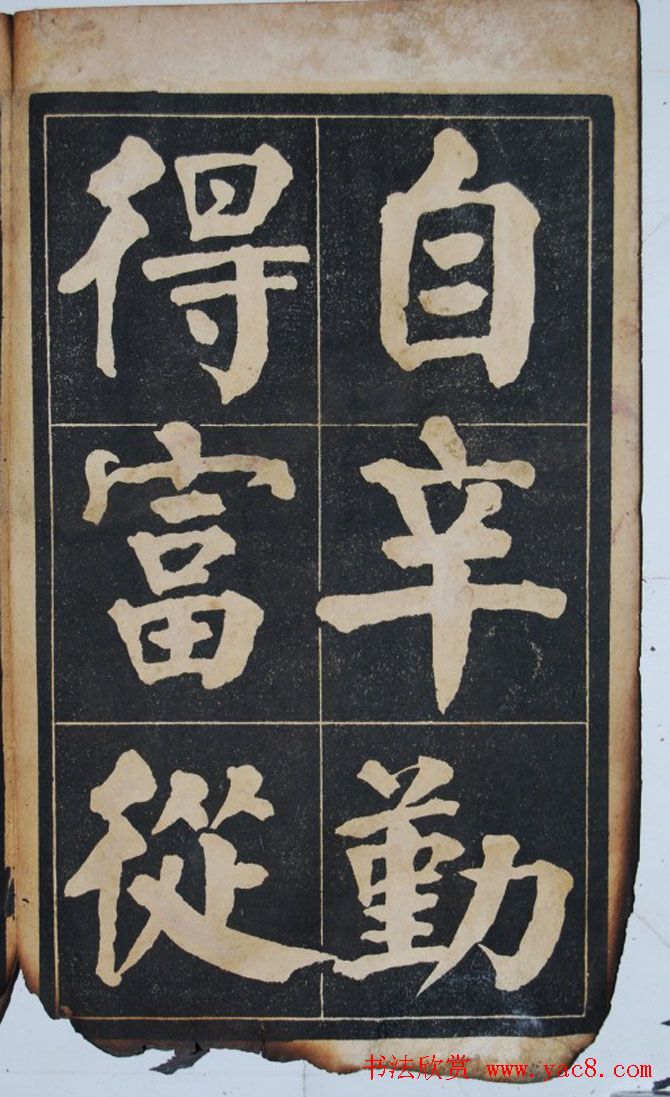 自辛勤
得富從
书法欣赏 www.yac8.com